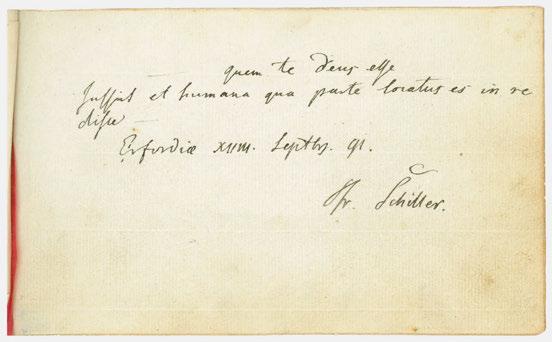 — quem te Deus esse
Jussit et humana qua parte locatus es in re
disce —
Erfordiæ XXIII. Septbr. 91.
Fr. Schiller.